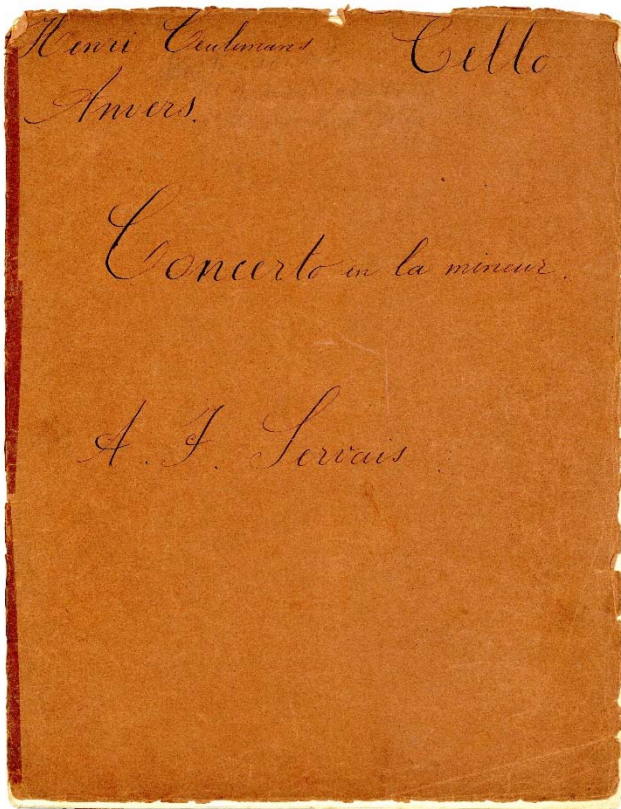 Henri Ceulemans Cello
Anvers.
Concerto en la mineur.
A. F. Servais